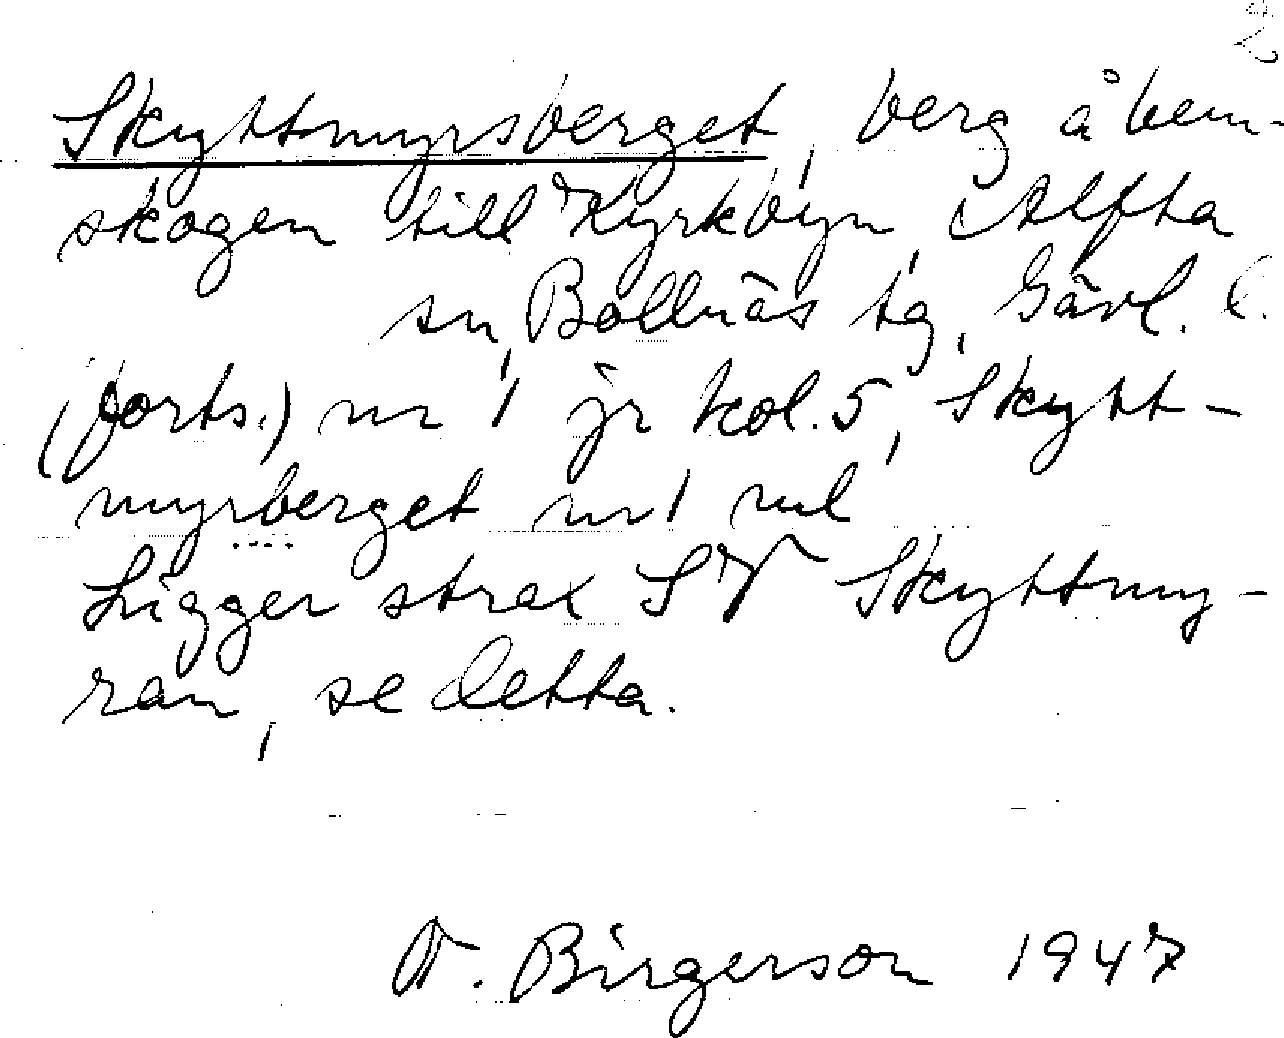 2
Skyttmyrsberget, berg å hem-
skogen till Kyrkbyn, Alfta
sn, Bollnäs tg, Gävl. l.
(forts.) nr 1 jr kol. 5, Skytt-
myrberget nr 1 ml
Ligger strax SV Skyttmy-
ran, se detta.
V. Birgerson 1947